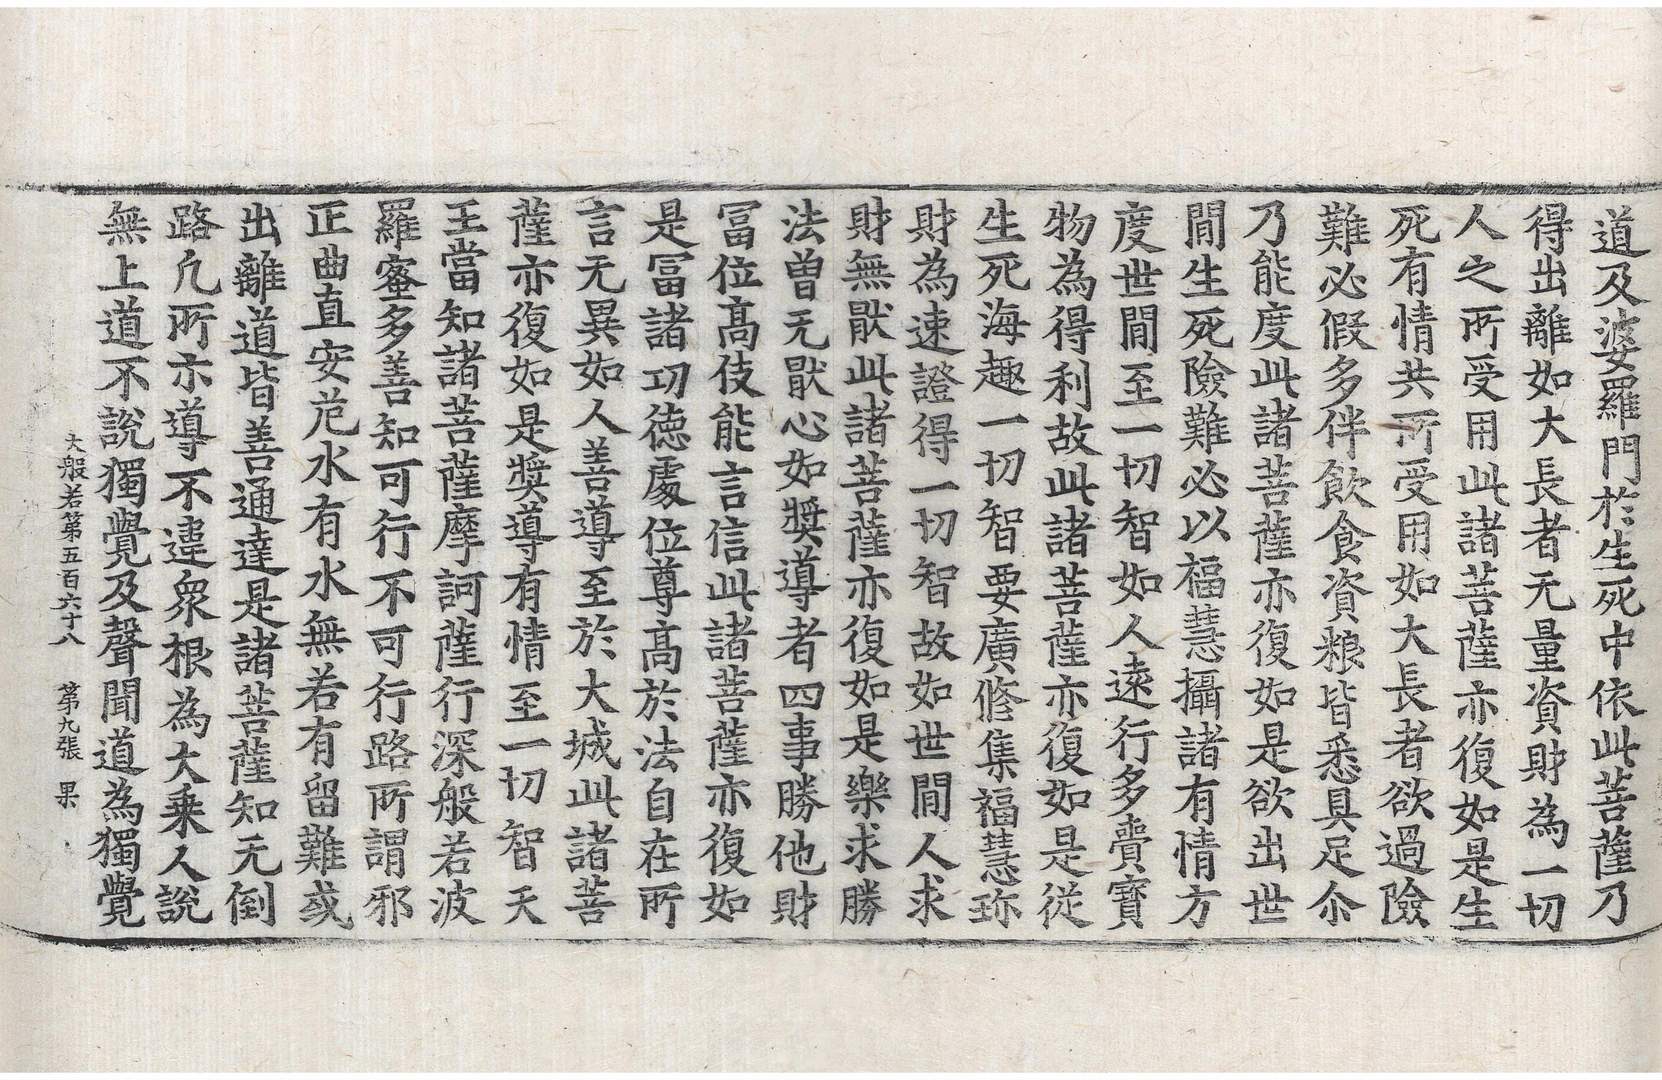 道及婆羅門於生死中依此菩薩乃
得出離如大長者无量資財為一切
人之所受用此諸菩薩亦復如是生
死有情共所受用如大長者欲過險
難必假多伴飲食資粮皆悉具足尒
乃能度此諸菩薩亦復如是欲出世
間生死險難必以福慧攝諸有情方
度世間至一切智如人遠行多賷寶
物為得利故此諸菩薩亦復如是從
生死海趣一切智要廣修集福慧珎
財為速證得一切智故如世間人求
財無猒此諸菩薩亦復如是樂求勝
法曾无猒心如奬導者四事勝他財
冨位髙伎能言信此諸菩薩亦復如
是冨諸功德處位尊髙於法自在所
言无異如人善導至於大城此諸菩
薩亦復如是奬導有情至一切智天
王當知諸菩薩摩訶薩行深般若波
羅蜜多善知可行不可行路所謂邪
正曲直安危水有水無若有留難或
出離道皆善通達是諸菩薩知无倒
路凢所示導不違衆根為大乗人說
無上道不說獨覺及聲聞道為獨覺
大般若第五百六十八 第九張 果